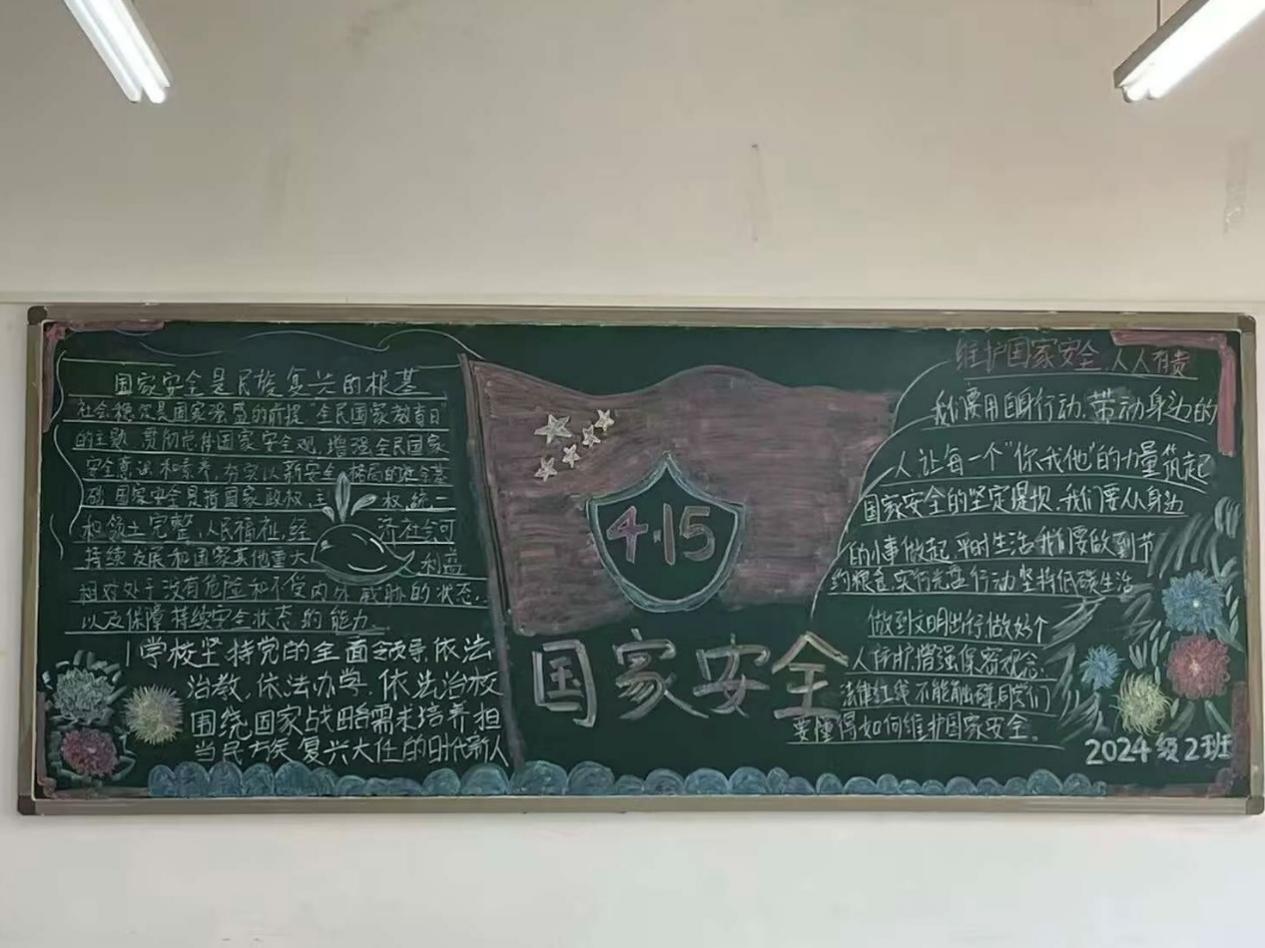 国家安全是民族复兴的根基
社会稳定是国家强盛的前提 全民国家教育日
的主题 贯彻总体国家安全观，增强全民国家
安全意识和素养，夯实以新安全格局的安全基
础 国家安全是指国家政权 主权 统一
和领土完整，人民福祉，经济社会可
持续发展和国家其他重大利益
相对处于没有危险和不受内外威胁的状态，
以及保障持续安全状态的能力
学校坚持党的全面领导依法
治教，依法办学，依法治校
围绕国家战略需求培养担
当民族复兴大任的时代新人
4·15
国家安全
维护国家安全，人人有责
我们要用自身行动，带动身边的
人让每一个“你、我、他”的力量筑起
国家安全的坚定堤坝，我们要从身边
的小事做起，平时生活我们要做到节
约粮食，实行光盘行动，坚持低碳生活
做到文明出行做好个
人防护，增强保密观念，
法律红线不能触碰，同学们
要懂得如何维护国家安全。
2024级2班